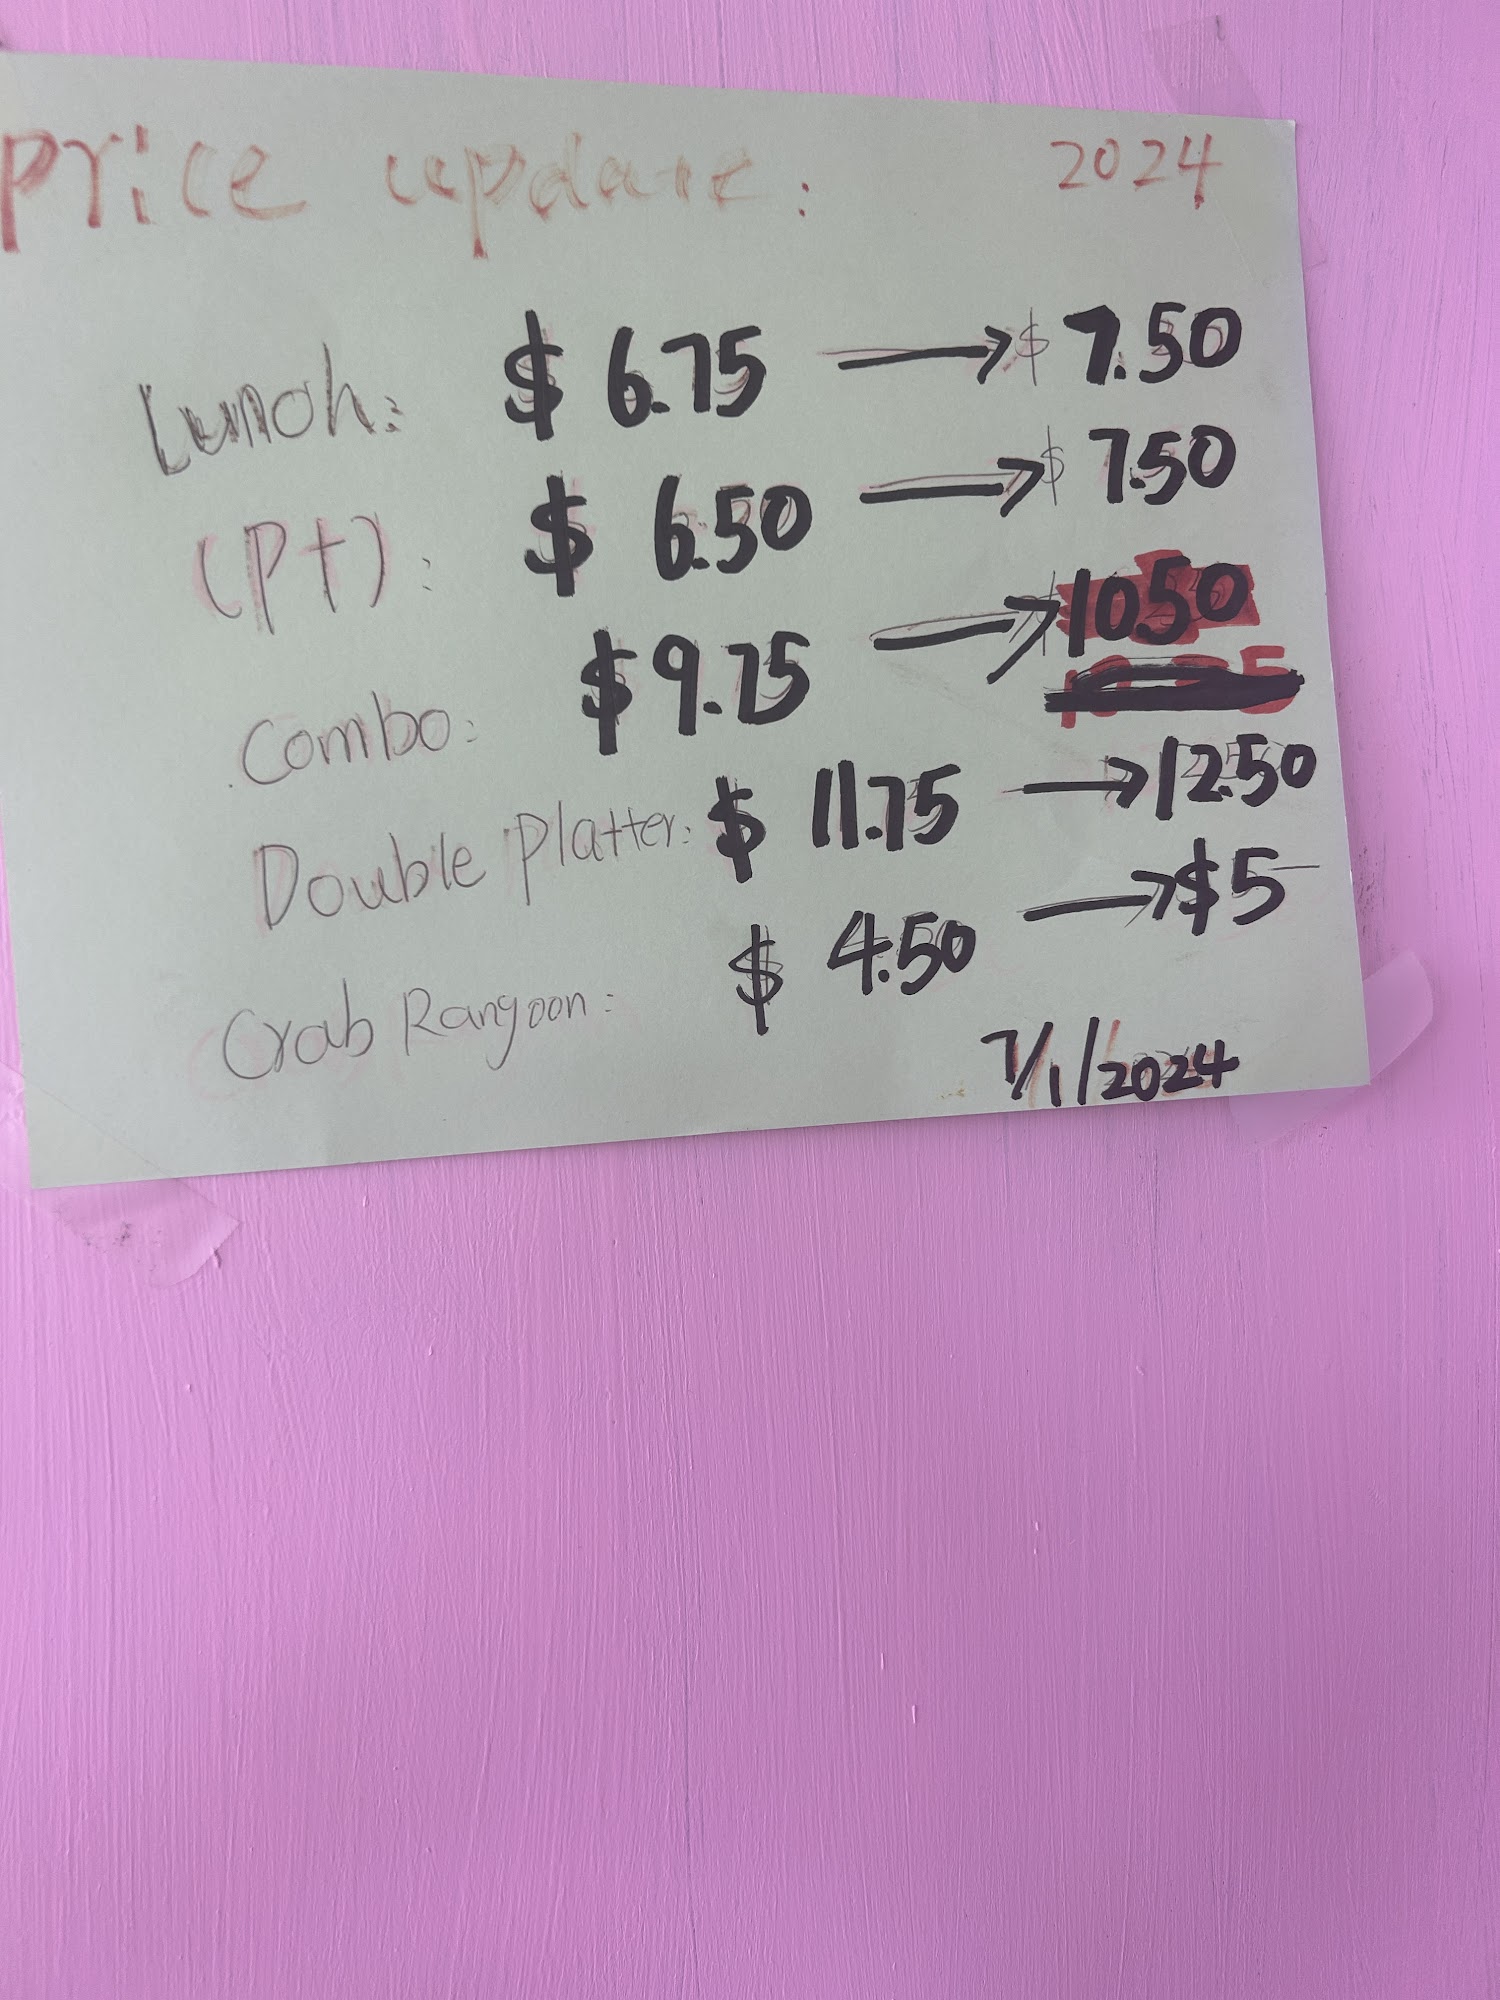 Price update: 2024
Lunch: $ 6.75 → $ 7.50
(Pt): $ 6.50 → $ 7.50
Combo: $ 9.75 → $ 10.50
Double Platter: $ 11.75 → 12.50
Crab Rangoon: $ 4.50 → $5
7/1/2024